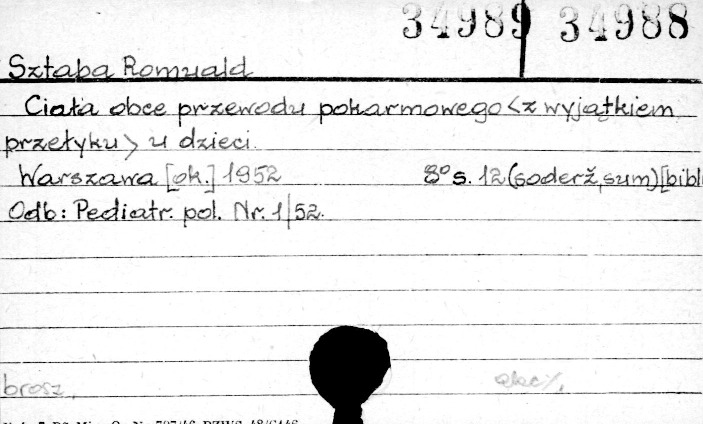 34989 34988
Sztaba Romuald
Ciała obce przewodu pokarmowego <z wyjątkiem
przełyku> u dzieci.
Warszawa [ok.] 1952 8° s. 12 (soderž, sum) [bibl
Odb: Pediatr. pol. Nr. 1/52.
brosz.